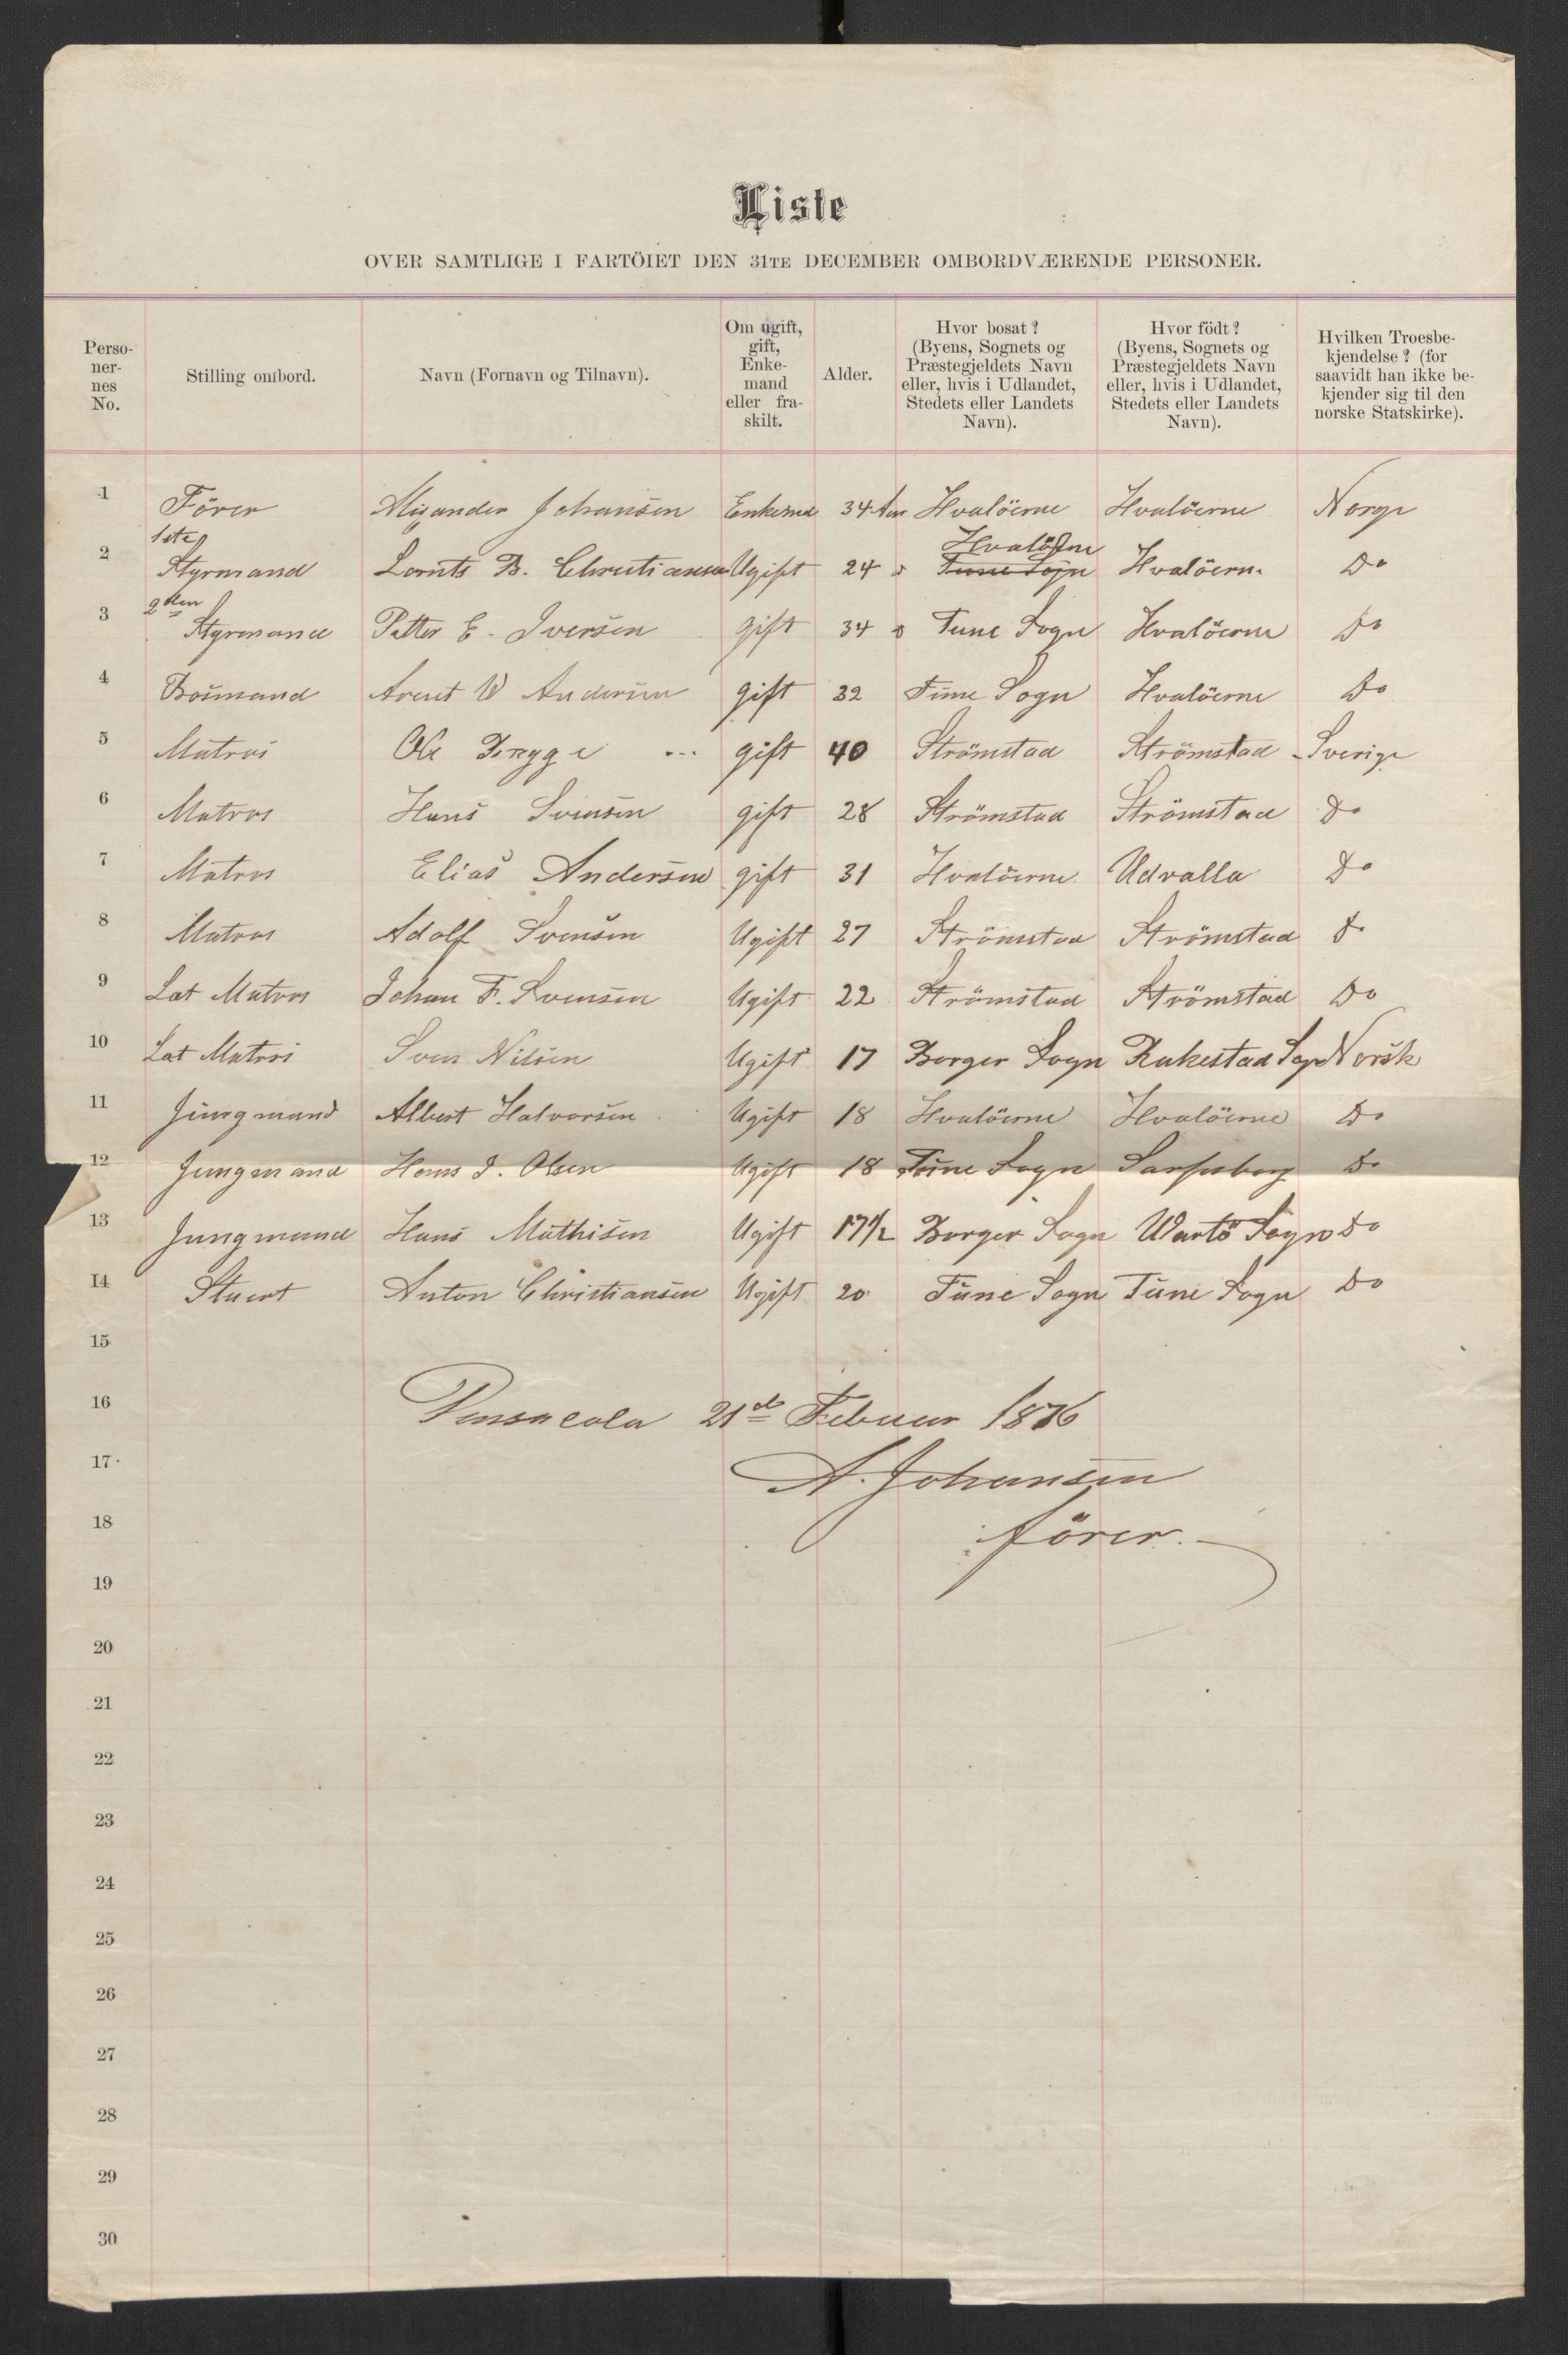 Liste
OVER SAMTLIGE I FARTÖIET DEN 31TE DECEMBER OMBORDVÆRENDE PERSONER.
Personernes No. | Stilling ombord. | Navn (Fornavn og Tilnavn). | Om ugift, gift, Enkemand eller fraskilt. | Alder. | Hvor bosat? (Byens, Sognets og Præstegjeldets Navn eller, hvis i Udlandet, Stedets eller Landets Navn). | Hvor födt? (Byens, Sognets og Præstegjeldets Navn eller, hvis i Udlandet, Stedets eller Landets Navn). | Hvilken Troesbekjendelse? (for saavidt han ikke bekjender sig til den norske Statskirke).
1 Förer Johansen 34 Hvalöerne Hvalöerne Norge
2 1ste Styrmand Lornts B. Christiansen Ugift 24 Tune Sogn Hvalöerne Hvalöerne Do
3 2den Styrmand Petter E. Iversen gift 34 Tune Sogn Hvalöerne Do
4 Arent Andersen gift 32 Tune Sogn Hvalöerne Do
5 Matros Ole Brygge gift 40 Strömstad Strömstad Sverige
6 Matros Hans Svensen gift 28 Strömstad Strömstad Do
7 Matros Elias Andersen gift 31 Hvalöerne Udvalla Do
8 Matros Adolf Svensen Ugift 27 Strömstad Strömstad Do
9 Let Matros Johan F. Svensen Ugift 22 Strömstad Strömstad Do
10 Let Matros Sven Nilsen Ugift 17 Borger Sogn Rakestad Sogn Norsk
11 Jungmand Albert Halvorsen Ugift 18 Hvalöerne Hvalöerne Do
12 Jungmand Hans J. Olsen Ugift 18 Tune Sogn Sarpsborg Do
13 Jungmand Hans Mathisen Ugift 17½ Borger Sogn Wartö Sogn Do
14 Stuert Anton Christiansen Ugift 20 Tune Sogn Tune Sogn Do
15
16 Pensacola 21de Februar 1876
17 A. Johansen
18 förer.
19
20
21
22
23
24
25
26
27
28
29
30